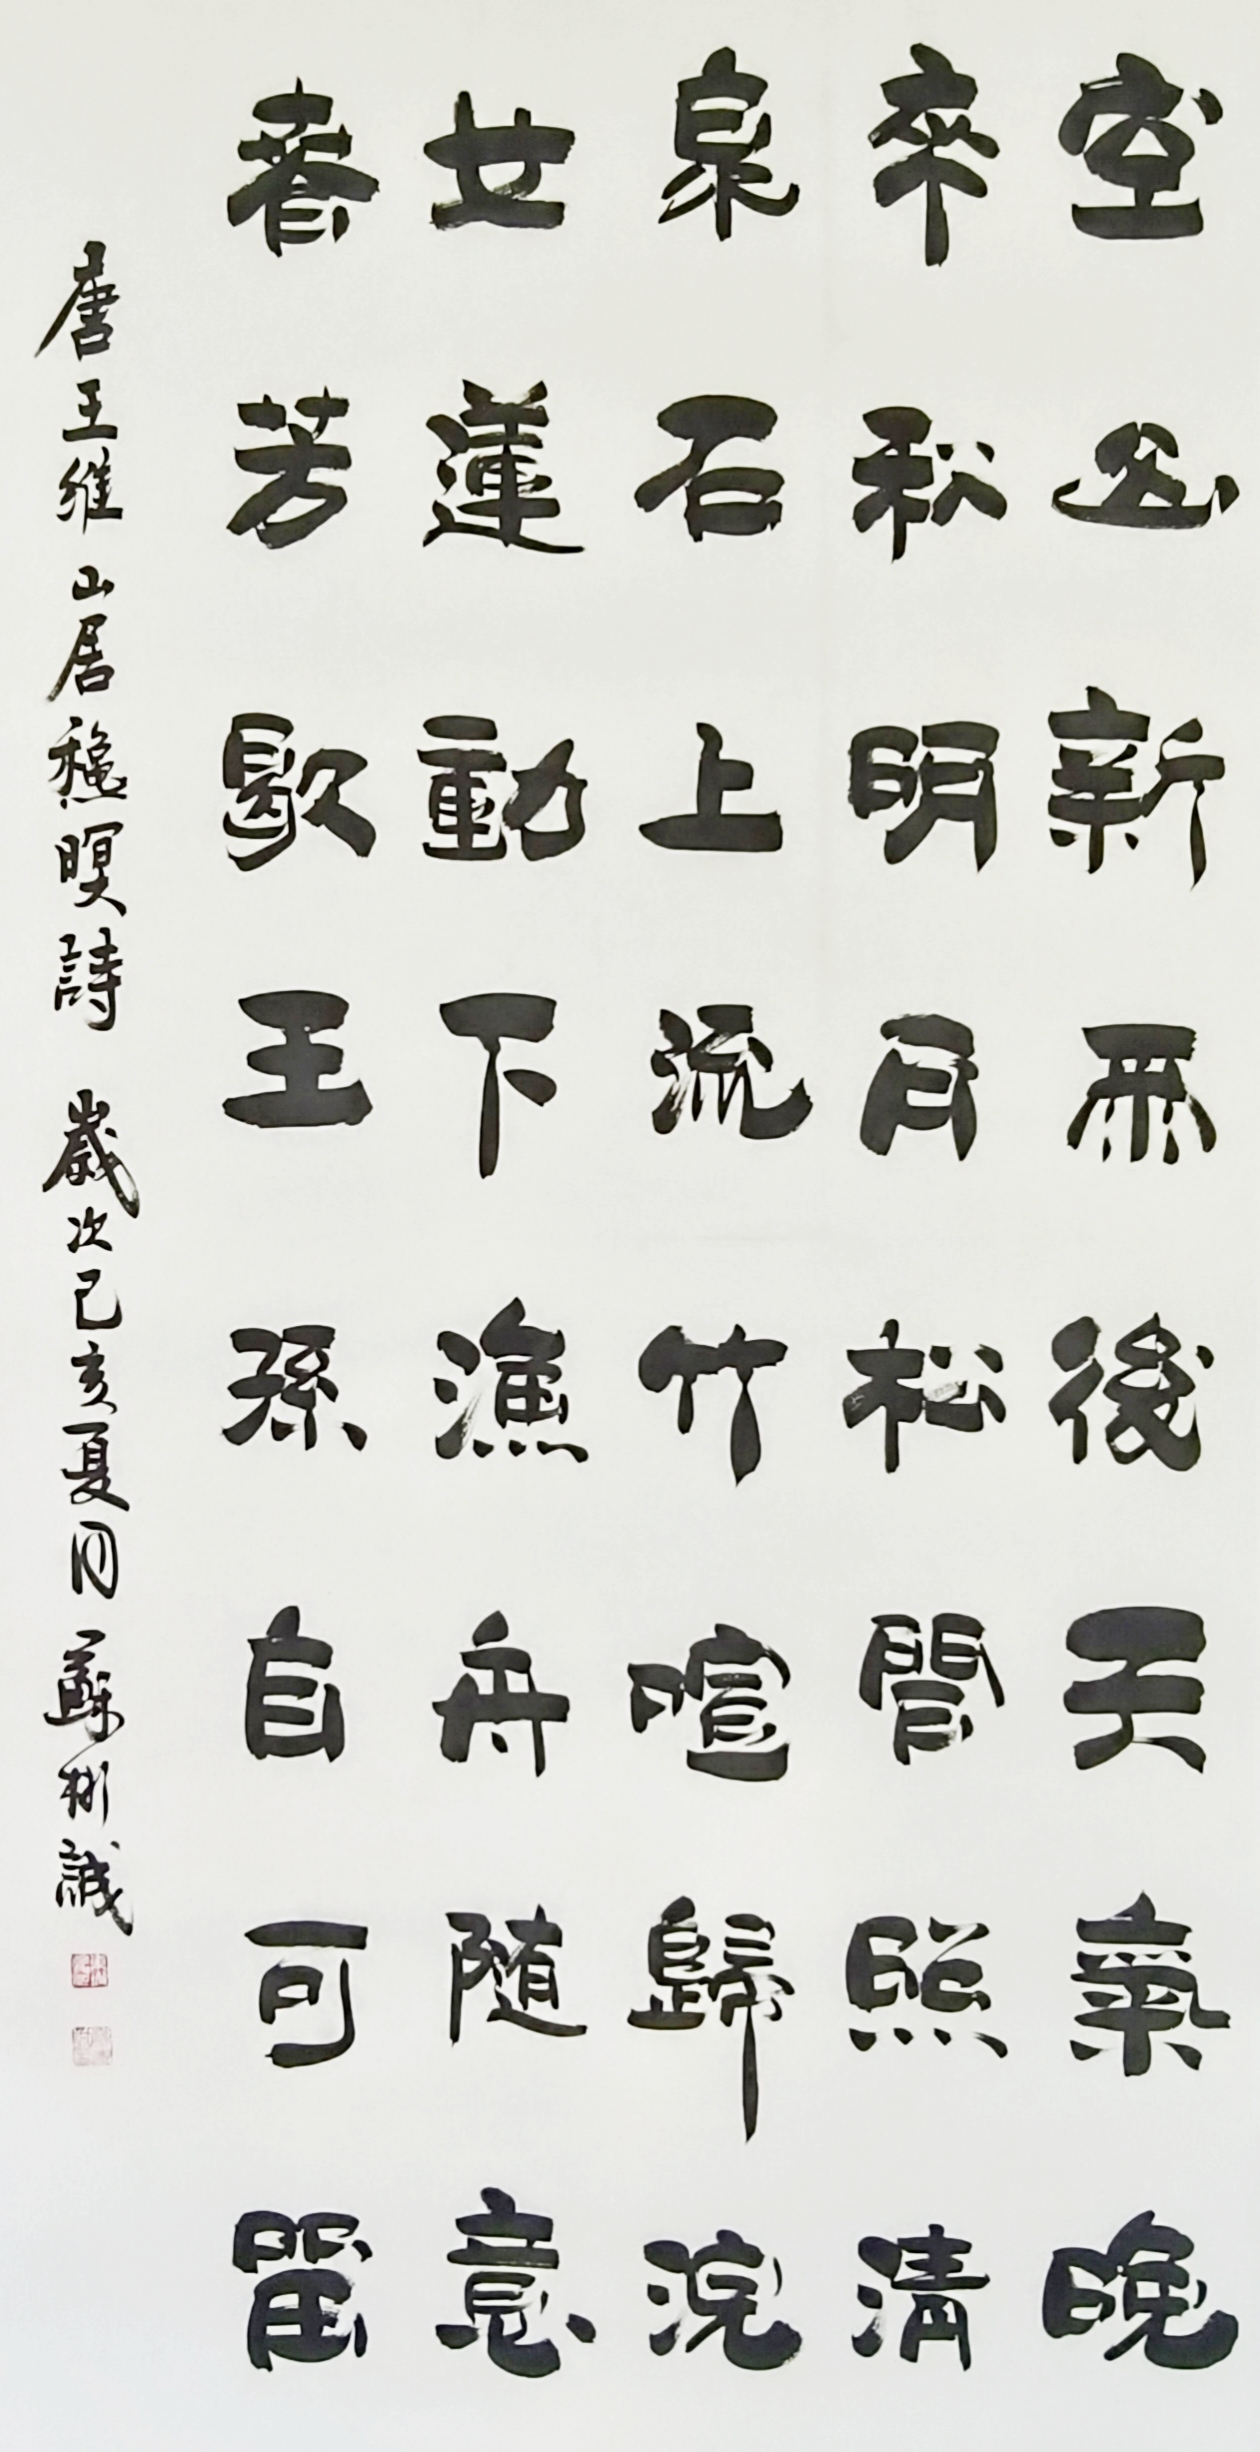 空山新雨後天氣晚
來秋明月松間照清
泉石上流竹喧歸浣
女蓮動下漁舟随意
春芳歇王孫自可畱
唐王維山居穐暝詩 歲次己亥夏月 蘇彬誠